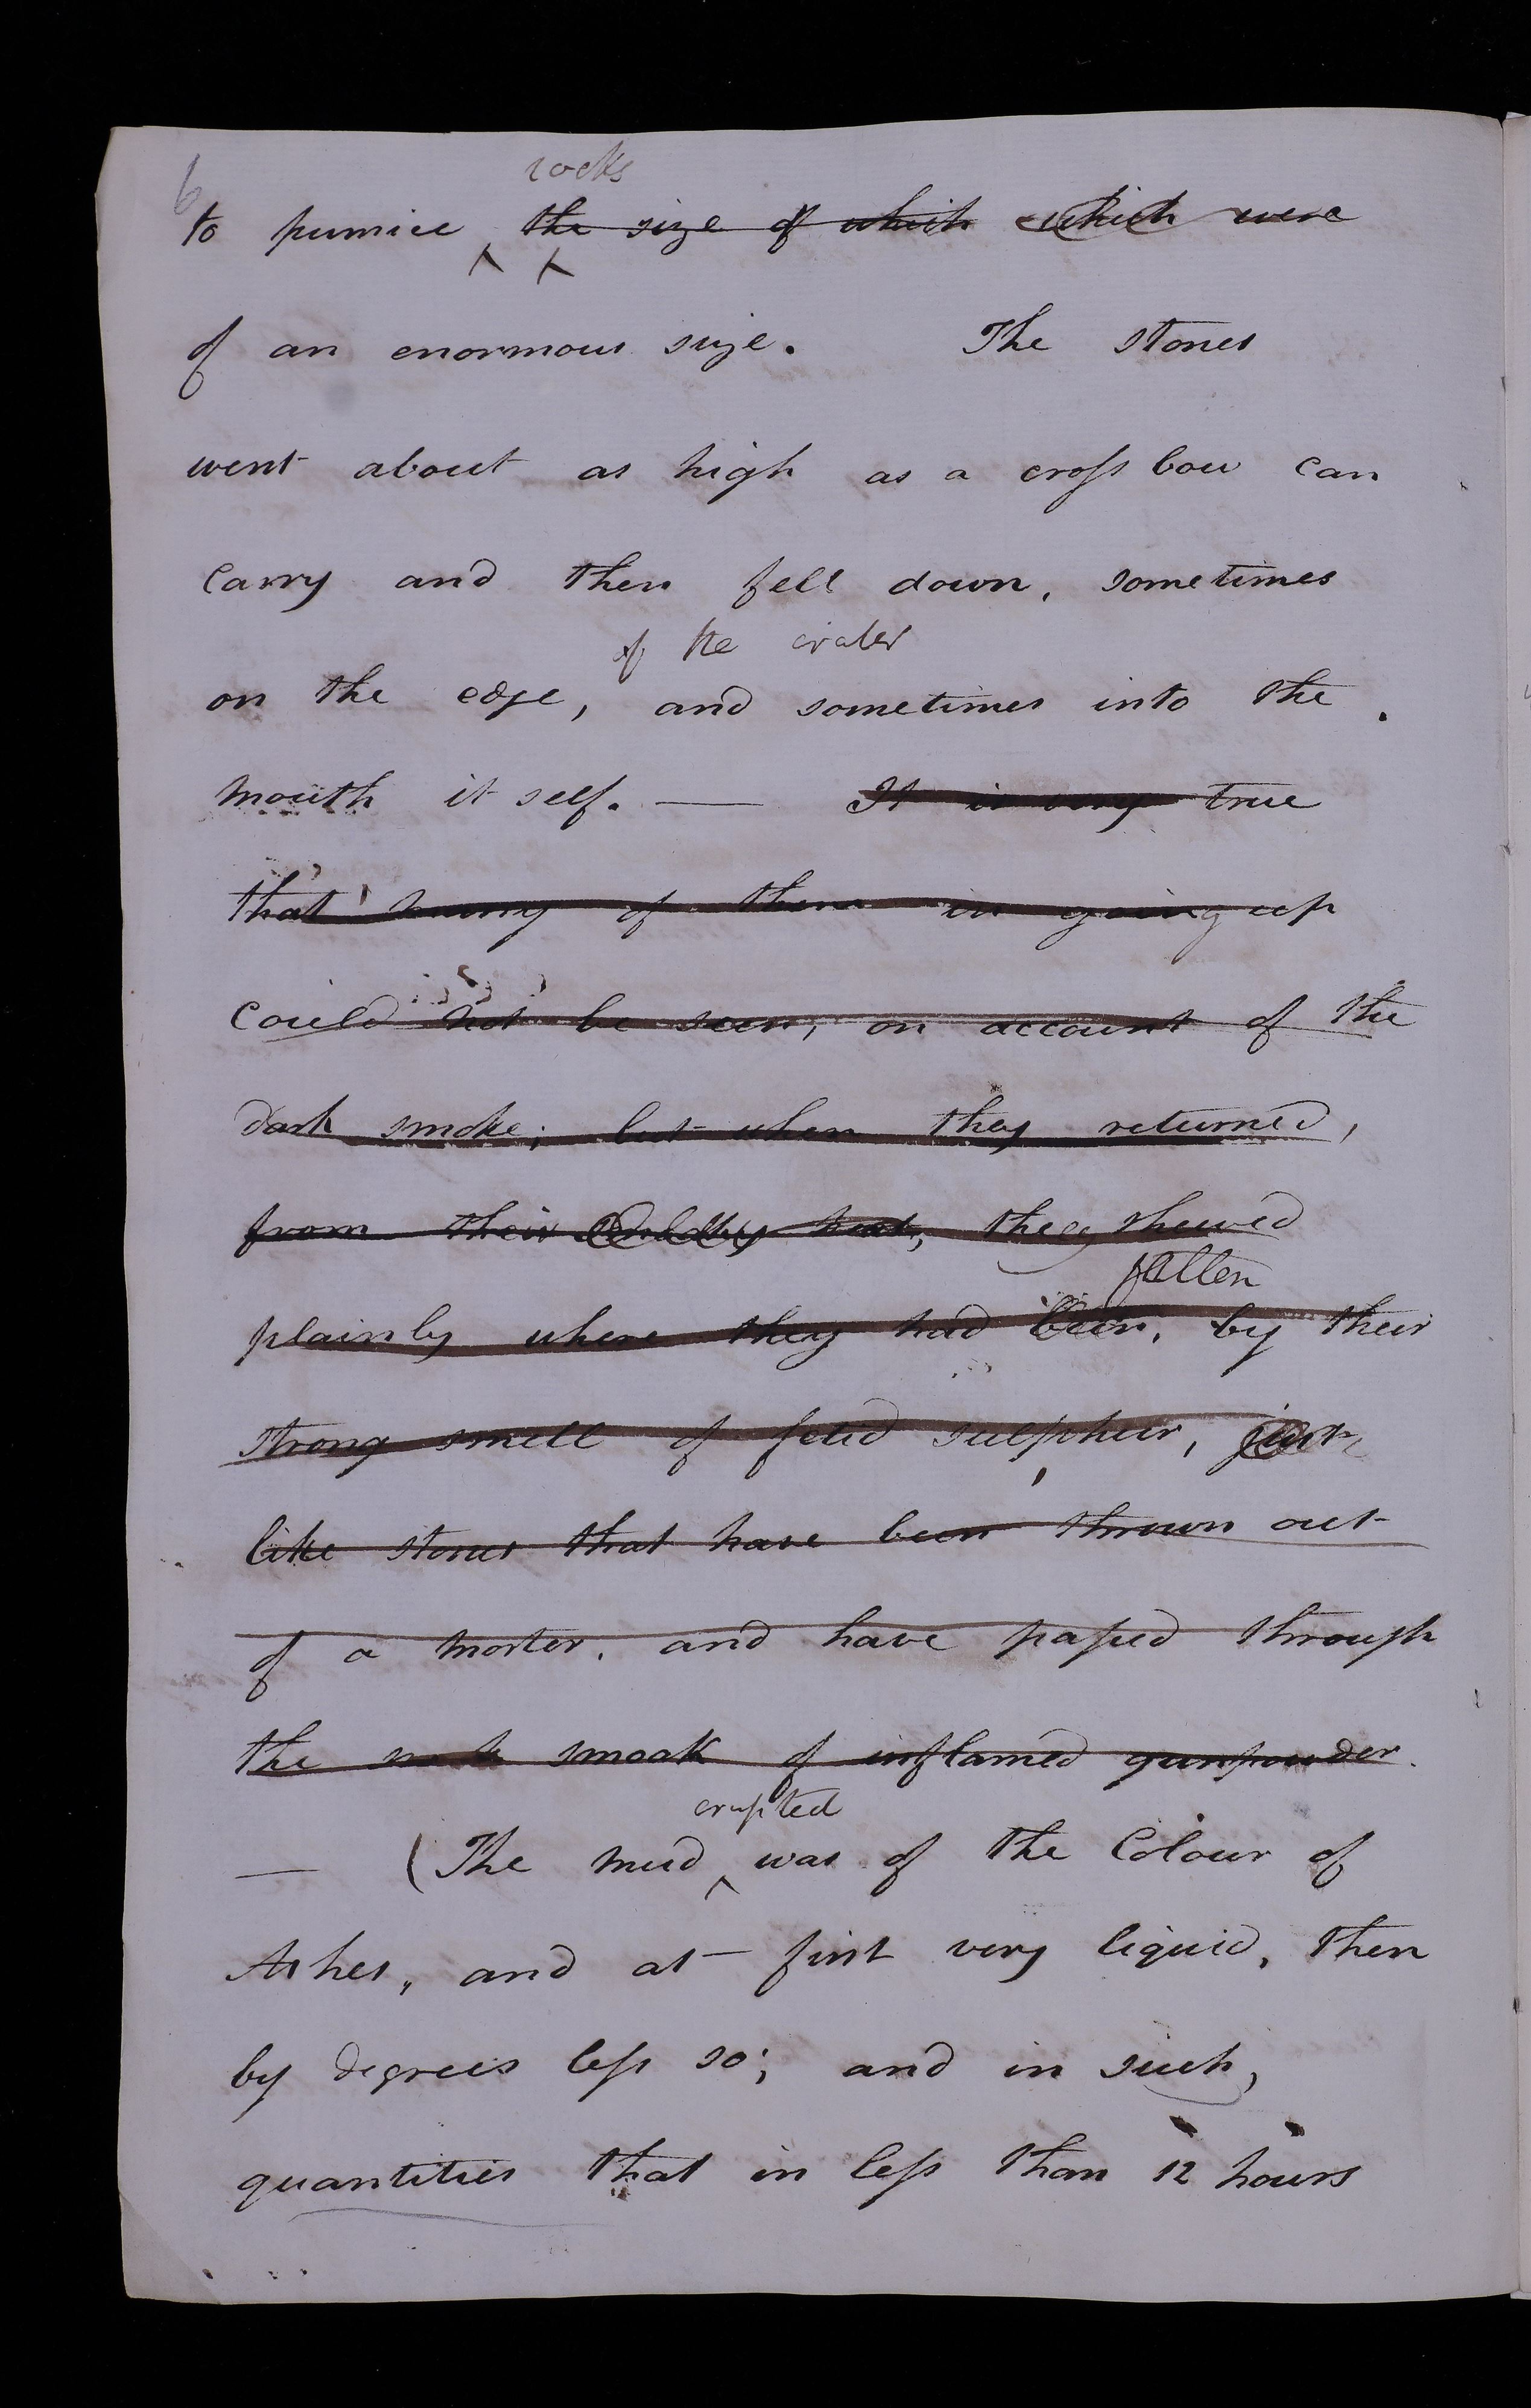 6
rocks
to pumice the size of which which were
of an enormous size. The stones
went about as high as a cross bow can
carry and then fell down, sometimes
of the crater
on the edge, and sometimes into the
mouth it self. — It is very true
that many of them in going up
could not be seen, on account of the
dark smoke; but when they returned,
from their heat, they shewed
fallen
plainly where they had been, by their
strong smell of fetid sulphur, just
like stones that have been thrown out
of a morter, and have passed through
the smoak of inflamed gunpowder.
erupted
— (The mud was of the Colour of
Ashes, and at first very liquid, then
by degrees less so; and in such
quantities that in less than 12 hours